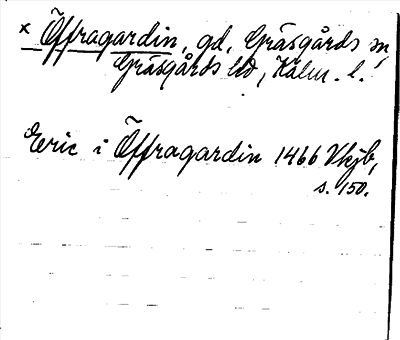 × Öffragardin, gd, Gräsgårds sn,
Gräsgårds hd, Kalm. l.
Eric i Öffragardin 1466 Vkjb,
s. 150.